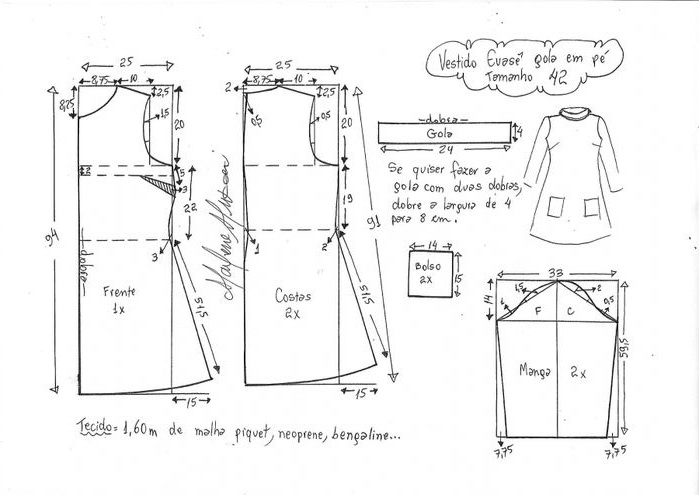 Vestido Evasê gola em pé
Tamanho 42
25
8,75
10
2,5
8,25
1,5
20
2
5
3
22
94
3
dobra
Frente
1x
51,5
15
25
8,75
10
2
2,5
0,5
0,5
20
19
91
1
2
Costas
2x
51,5
15
Marlene Mukai
dobra
Gola
4
24
Se quiser fazer a
gola com duas dobras,
dobre a largura de 4
para 8 cm.
14
Bolso
2x
15
33
14
1,5
2
1
0,5
F
C
59,5
Manga
2x
7,75
7,75
Tecido = 1,60m de malha piquet, neoprene, bengaline...